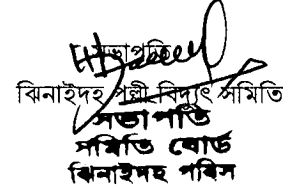 সভাপতি
ঝিনাইদহ পল্লী বিদ্যুৎ সমিতি
সভাপতি
সমিতি বোর্ড
ঝিনাইদহ পবিস